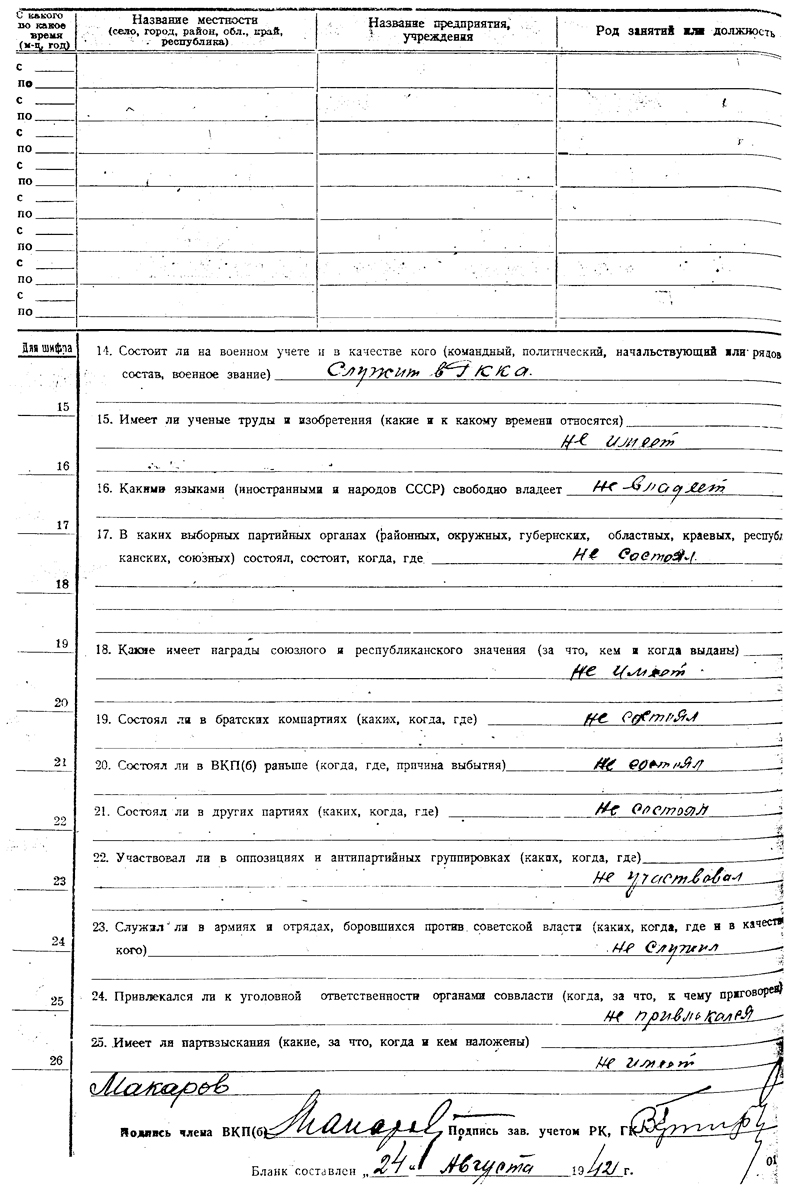 С какого по какое время (м-ц, год)
Название местности
(село, город, район, обл., край, республика)
Название предприятия, учреждения
Род занятий или должность
с
по
с
по
с
по
с
по
с
по
с
по
с
по
с
по
Для шифра
14. Состоит ли на военном учете и в качестве кого (командный, политический, начальствующий или рядов
состав, военное звание) Служит в РККА.
15
15. Имеет ли ученые труды и изобретения (какие и к какому времени относятся)
не имеет
16
16. Какими языками (иностранными и народов СССР) свободно владеет не владеет
17
17. В каких выборных партийных органах (районных, окружных, губернских, областных, краевых, республ
канских, союзных) состоял, состоит, когда, где не состоял.
18
19
18. Какие имеет награды союзного и республиканского значения (за что, кем и когда выданы)
не имеет
20
19. Состоял ли в братских компартиях (каких, когда, где) не состоял
21
20. Состоял ли в ВКП(б) раньше (когда, где, причина выбытия) не состоял
22
21. Состоял ли в других партиях (каких, когда, где) не состоял
22. Участвовал ли в оппозициях и антипартийных группировках (каких, когда, где)
23
не участвовал
23. Служил ли в армиях и отрядах, боровшихся против советской власти (каких, когда, где и в качеств
24
кого) не служил
25
24. Привлекался ли к уголовной ответственности органами соввласти (когда, за что, к чему приговорен)
не привлекался
25. Имеет ли партвзыскания (какие, за что, когда и кем наложены)
26
не имеет
Макаров
Подпись члена ВКП(б) Макаров Подпись зав. учетом РК, ГК
Бланк составлен „24" Августа 1942 г.
01